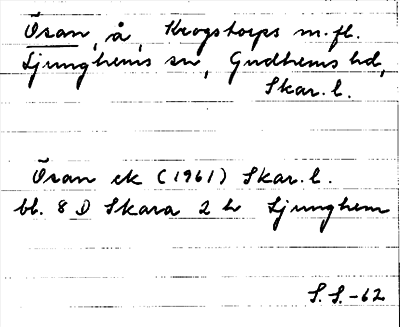 Ösan, å, Krogstorps m.fl.
Ljunghems sn, Gudhems hd,
Skar. l.
Ösan ek (1961) Skar. l.
bl. 8 D Skara 2 h Ljunghem
S. S. -62